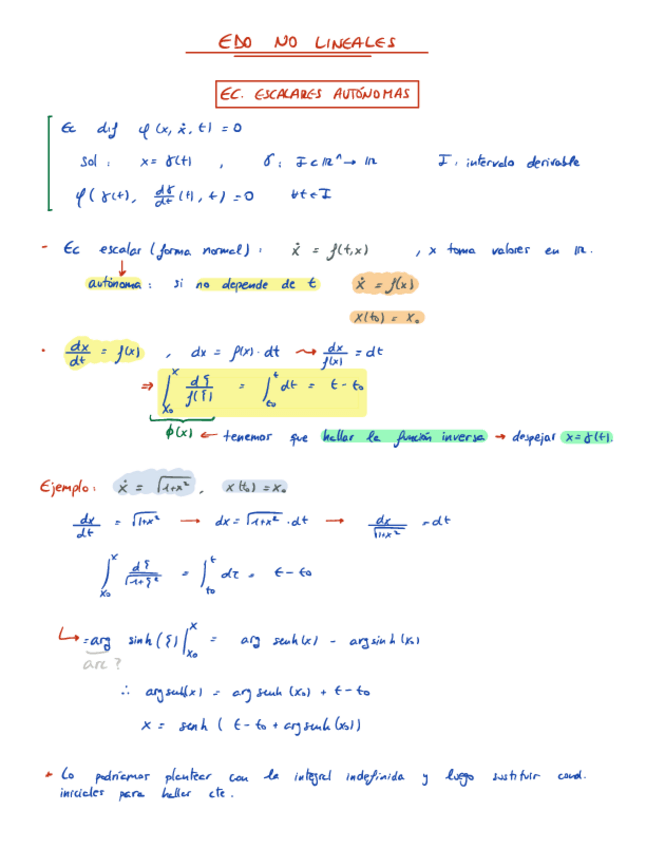 EDO NO LINEALES
EC. ESCALARES AUTÓNOMAS
Ec dif φ(x, ẋ, t) = 0
Sol: x = γ(t) , γ: I ⊂ ℝ^n → ℝ I: intervalo derivable
φ(γ(t), dγ/dt (t), t) = 0 ∀t ∈ I
- Ec escalar (forma normal): ẋ = f(t,x) , x toma valores en ℝ.
↓
autónoma: si no depende de t ẋ = f(x)
x(t₀) = x₀
· dx/dt = f(x) , dx = f(x)·dt ⇝ dx/f(x) = dt
⇒ ∫_{x₀}^{x} dξ/f(ξ) = ∫_{t₀}^{t} dt = t - t₀
ϕ(x) ← tenemos que hallar la función inversa → despejar x = γ(t).
Ejemplo: ẋ = √(1+x²) , x(t₀) = x₀
dx/dt = √(1+x²) → dx = √(1+x²)·dt → dx/√(1+x²) = dt
∫_{x₀}^{x} dξ/√(1+ξ²) = ∫_{t₀}^{t} dτ = t - t₀
↳ = arg sinh(ξ)|_{x₀}^{x} = arg senh(x) - argsinh(x₀)
arc ?
∴ argsenh(x) = arg senh(x₀) + t - t₀
x = senh ( t - t₀ + argsenh(x₀))
* Lo podríamos plantear con la integral indefinida y luego sustituir cond.
iniciales para hallar cte.